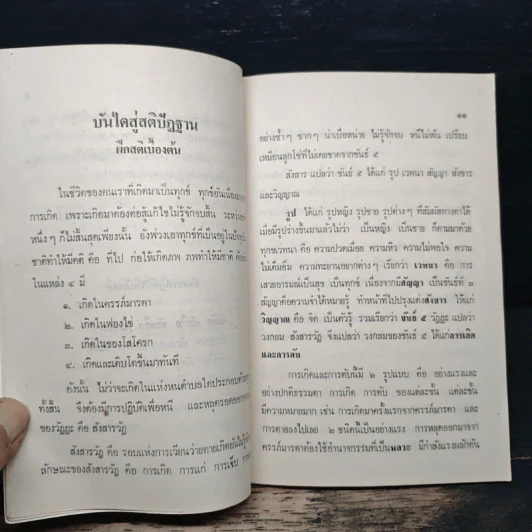 บันไดสู่สติปัฏฐาน
ฝึกสติเบื้องต้น
ในชีวิตของคนเราที่เกิดมาเป็นทุกข์ ทุกข์อันเนื่องมาจาก
การเกิด เพราะเกิดมาต้องต่อสู้แก้ไขไม่รู้จักจบสิ้น ระหว่าง
หนึ่งๆ ก็ไม่สิ้นสุดเพียงนั้น ยังพ่วงเอาทุกข์ที่เป็นอยู่ใน
ชาติทำให้มีคติ คือ ที่ไป ก่อให้เกิดภพ ภพทำให้มีชาติ
ในแหล่ง ๔ มี
๑. เกิดในครรภ์มารดา
๒. เกิดในฟองไข่
๓. เกิดในของโสโครก
๔. เกิดและเติบโตขึ้นมาทันที
ดังนั้น ไม่ว่าจะเกิดในแห่งหนตำบลใดประกอบด้วย
ทั้งสิ้น จึงต้องมีการปฏิบัติเพื่อหนี และหลุดรอดออก
ของวัฏฏะ คือ สังสารวัฏ
สังสารวัฏ คือ รอบแห่งการเวียนว่ายตายเกิดอันไม่รู้
ลักษณะของสังสารวัฏ คือ การเกิด การแก่ การเจ็บ
๑๑
อย่างซ้ำๆ ซากๆ น่าเบื่อหน่าย ไม่รู้จักจบ หนีไม่พ้น เปรียบ
เหมือนลูกโซ่ที่ไม่เคยขาดจากขันธ์ ๕
สังสาร แปลว่า ขันธ์ ๕ ได้แก่ รูป เวทนา สัญญา สังขาร
และวิญญาณ
รูป ได้แก่ รูปหญิง รูปชาย รูปต่างๆ ที่สัมผัสทางตาได้
เมื่อมีรูปร่างขึ้นมาแล้วไม่ว่า เป็นหญิง เป็นชาย ก็ตามมาด้วย
ทุกขเวทนา คือ ความปวดเมื่อย ความหิว ความไม่พอใจ ความ
ไม่เต็มอิ่ม ความทะยานอยากต่างๆ เรียกว่า เวทนา คือ การ
เสวยอารมณ์เป็นสุข เป็นทุกข์ เนื่องจากมีสัญญา เป็นขันธ์ที่ ๓
สัญญาคือความจำได้หมายรู้ ทำหน้าที่ไปปรุงแต่งสังขาร ให้แก่
วิญญาณ คือ จิต เป็นตัวรู้ รวมเรียกว่า ขันธ์ ๕ วัฏฏะ แปลว่า
วงกลม สังสารวัฏ จึงแปลว่า วงกลมของขันธ์ ๕ ได้แก่การเกิด
และการดับ
การเกิดและการดับนี้มี ๒ รูปแบบ คือ อย่างแรงและ
อย่างปกติธรรมดา การเกิด การดับ ของแต่ละชั้น แต่ละชั้น
มีความหมายมาก เช่น การเกิดมาครั้งแรกจากครรภ์มารดา และ
การตายลงไปเลย ๒ ชนิดนี้เป็นอย่างแรง การหลุดออกมาจาก
ครรภ์มารดาต้องใช้อำนาจกรรมที่เป็นพลวะ มีกำลังแรงผลักดัน